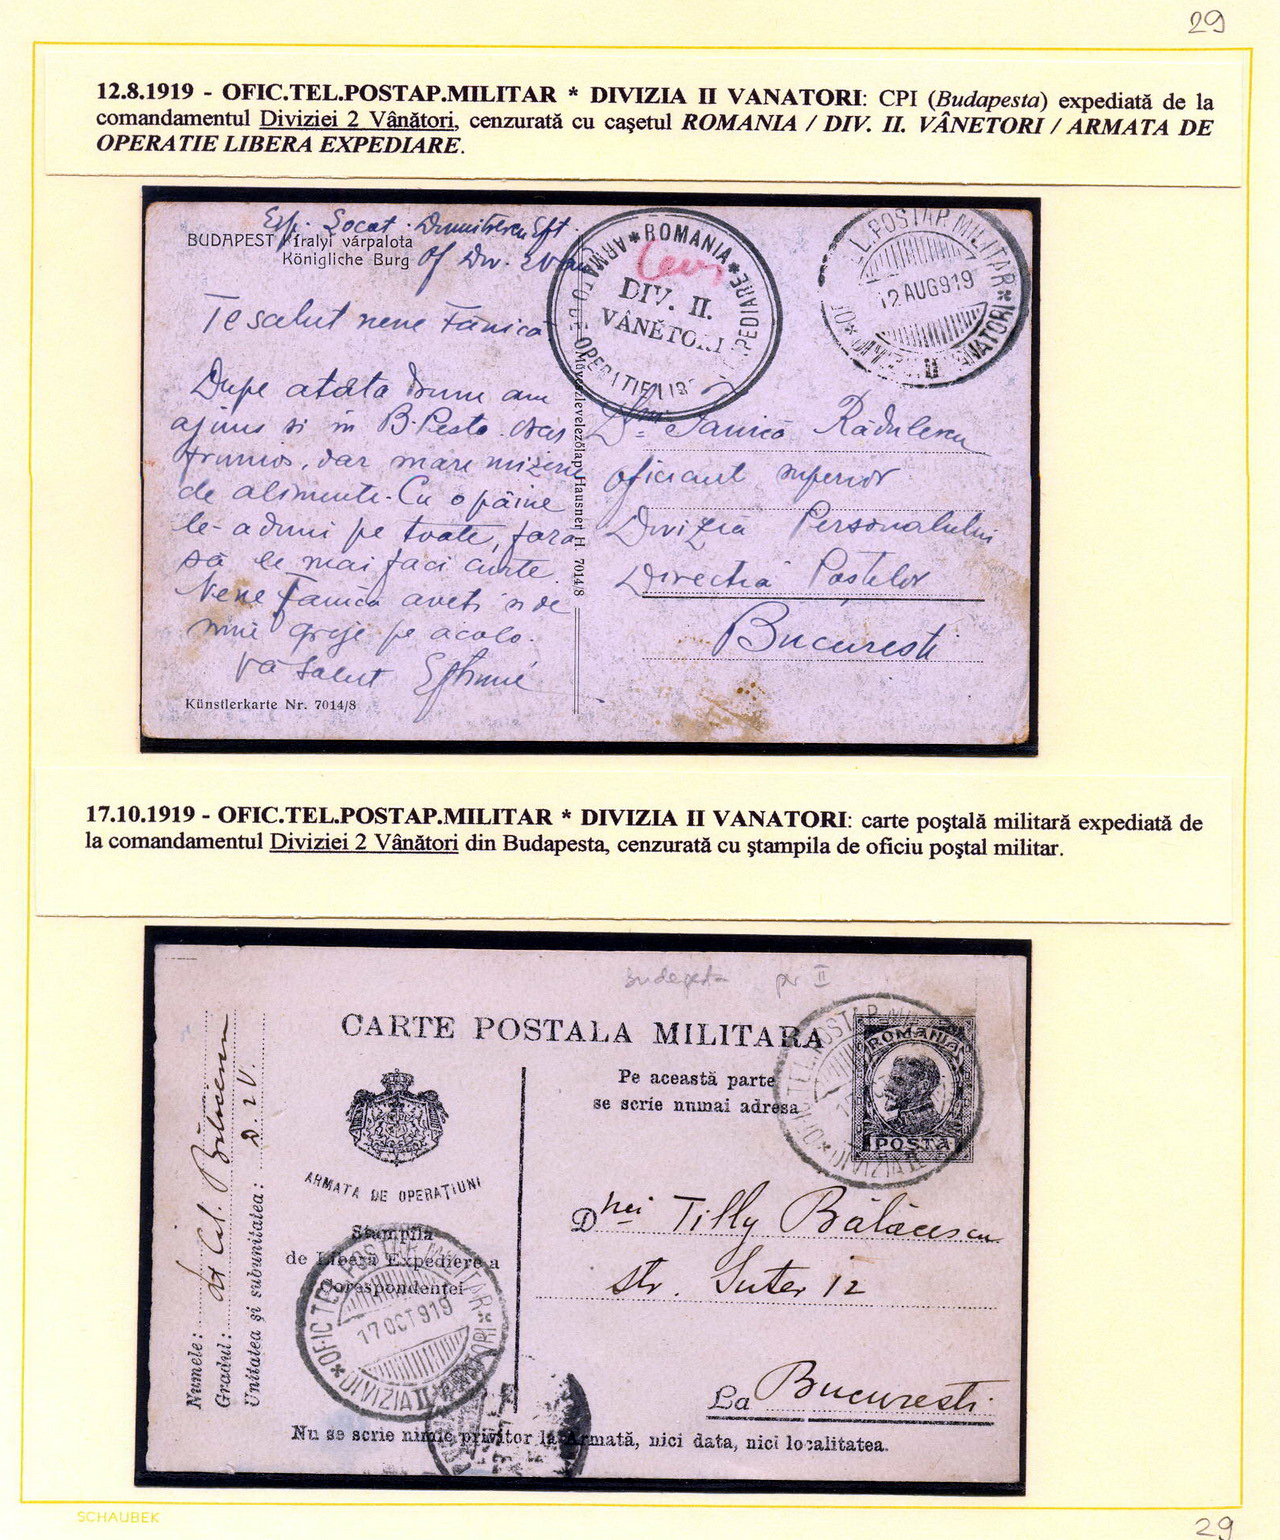 29
12.8.1919 - OFIC.TEL.POSTAP.MILITAR * DIVIZIA II VANATORI: CPI (Budapesta) expediată de la
comandamentul Diviziei 2 Vânători, cenzurată cu caşetul ROMANIA / DIV. II. VÂNETORI / ARMATA DE
OPERATIE LIBERA EXPEDIARE.
Esp. Locot. Dumitrescu Eft.
BUDAPEST Királyi várpalota
Königliche Burg
Of Div.
ROMANIA
DIV. II.
VÂNĔTORI
TEL.POSTAP.MILITAR
12 AUG 919
Te salut nene Fănică
După atâta drum am
ajuns si in B-Pesta. Oraș
frumos, dar mare mizerie
de alimente. Cu o pâine
le-aduni pe toate, fara
să le mai faci curte.
Nene Fanică aveti si de
mine grije pe acolo.
Vă salut Eftimie
Művészlevelezőlap Hausner H. 7014/8
Künstlerkarte Nr. 7014/8
Dlui Fanică Rădulescu
oficiant superior
Divizia Personalului
Directia Poștelor
Bucuresti
17.10.1919 - OFIC.TEL.POSTAP.MILITAR * DIVIZIA II VANATORI: carte poştală militară expediată de
la comandamentul Diviziei 2 Vânători din Budapesta, cenzurată cu ştampila de oficiu poştal militar.
budapesta
CARTE POSTALA MILITARA
Pe această parte
se scrie numai adresa
ROMANIA
POSTA
ARMATA DE OPERAŢIUNI
Stampila
de Liberă Expediere a
Corespondenţei
OFIC.TEL.POSTAP.MILITAR
17 OCT 919
DIVIZIA II VANATORI
Numele:
Gradul: Lt Col. Bălăcescu
Unitatea şi subunitatea: D. 2 V.
Dnei Tilly Bălăcescu
str. Suter 12
La Bucuresti
Nu se scrie nimic privitor la Armată, nici data, nici localitatea.
SCHAUBEK
29